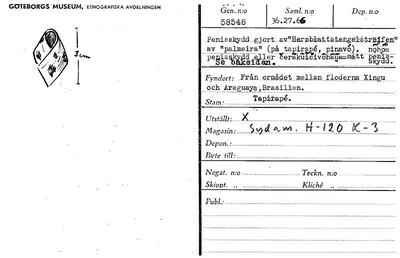 GÖTEBORGS MUSEUM, ETNOGRAFISKA AVDELNINGEN
3cm
Gen.n:o Saml. n:o Dep. n:o
58548 36.27.66
Penisskydd gjort av
av "palmeira" (på tapirapé, pinavó).
penisskydd eller
Se baksidan.
skydd.
Fyndort: Från området mellan floderna Xingu
och Araguaya, Brasilien.
Stam: Tapirapé.
Utställt: X
Magasin: Sydam. H-120 K-3
Depon.:
Byte till:
Negat. n:o Teckn. n:o
Skiopt. „ Kliché „
Publ.: